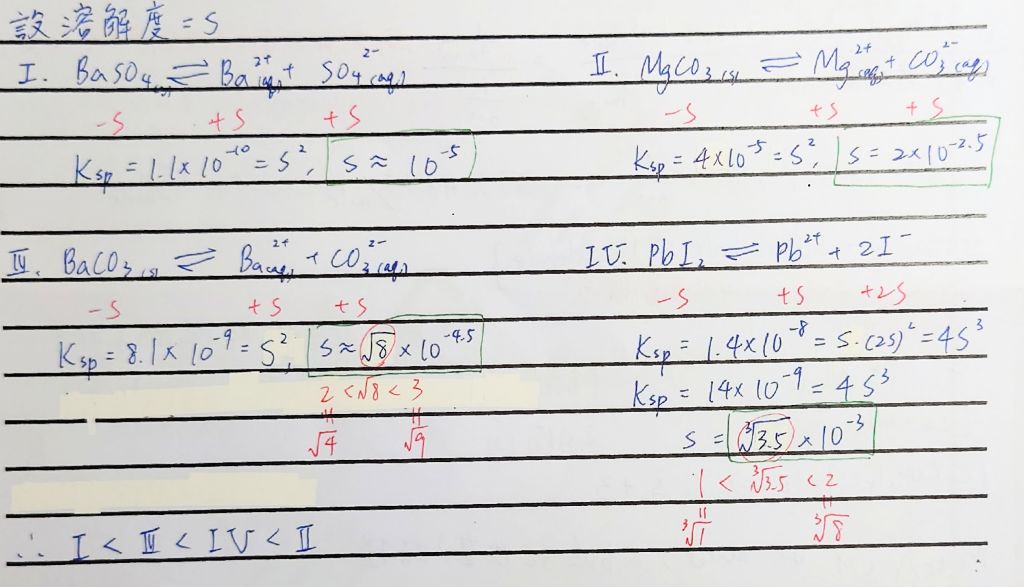 設溶解度 = S
I. BaSO₄(s) ⇌ Ba²⁺(aq) + SO₄²⁻(aq)
-S +S +S
Ksp = 1.1×10⁻¹⁰ = S², S ≈ 10⁻⁵
II. MgCO₃(s) ⇌ Mg²⁺(aq) + CO₃²⁻(aq)
-S +S +S
Ksp = 4×10⁻⁵ = S², S = 2×10⁻²·⁵
III. BaCO₃(s) ⇌ Ba²⁺(aq) + CO₃²⁻(aq)
-S +S +S
Ksp = 8.1×10⁻⁹ = S², S ≈ √8 × 10⁻⁴·⁵
2 < √8 < 3
= =
√4 √9
IV. PbI₂ ⇌ Pb²⁺ + 2I⁻
-S +S +2S
Ksp = 1.4×10⁻⁸ = S·(2S)² = 4S³
Ksp = 14×10⁻⁹ = 4S³
S = ∛3.5 × 10⁻³
1 < ∛3.5 < 2
= =
∛1 ∛8
∴ I < III < IV < II